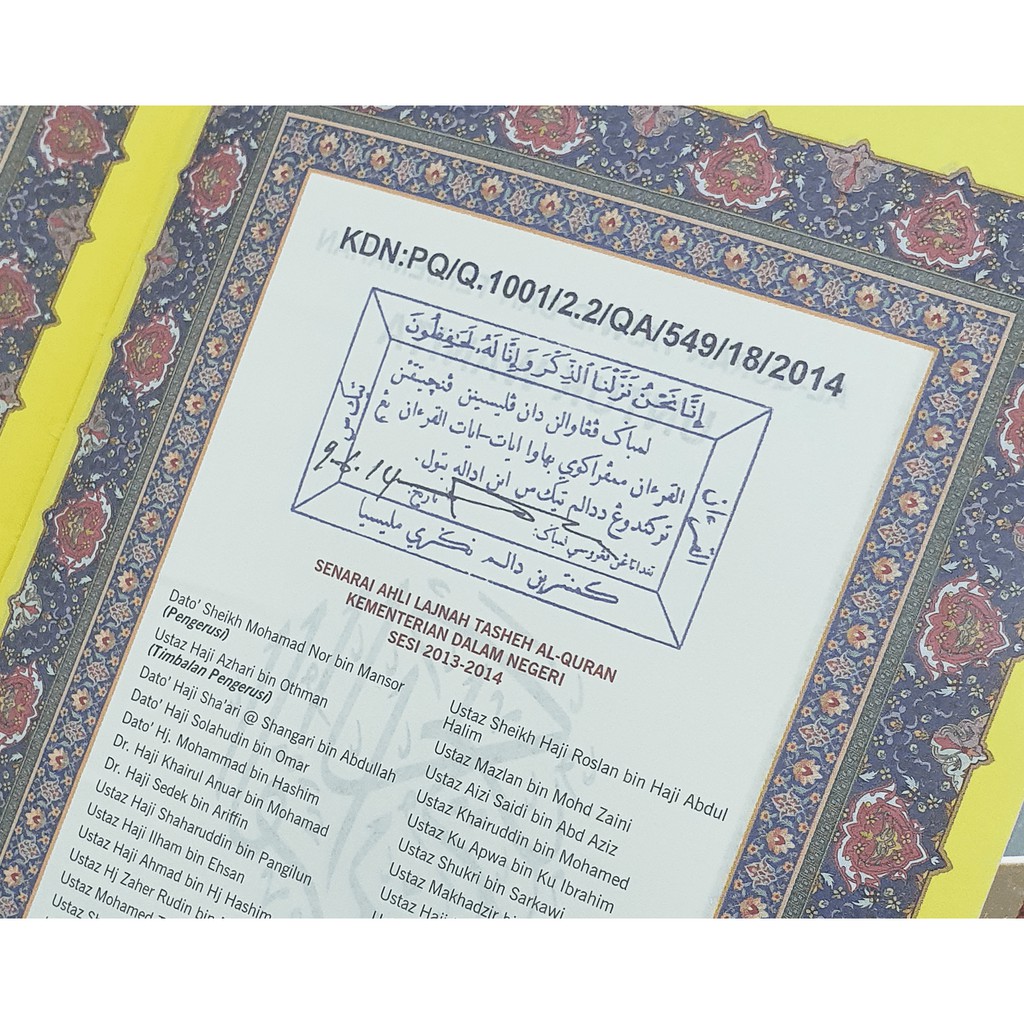 KDN:PQ/Q.1001/2.2/QA/549/18/2014
إِنَّا نَحْنُ نَزَّلْنَا ٱلذِّكْرَ وَإِنَّا لَهُۥ لَحَٰفِظُونَ
لمباݢ ڤڠاوالن دان ڤليسينن ڤنچيتقن
القرءان ممڤراكوي بهاوا ايات-ايات القرءان يڠ
تركندوڠ ددالم تيک س اين اداله بتول.
تنداتاڠن ڤڠروسي لمباݢ:
تاريخ:
9-6-14
كمنترين دالم نݢري مليسيا
SENARAI AHLI LAJNAH TASHEH AL-QURAN
KEMENTERIAN DALAM NEGERI
SESI 2013-2014
Dato' Sheikh Mohamad Nor bin Mansor
(Pengerusi)
Ustaz Haji Azhari bin Othman
(Timbalan Pengerusi)
Dato' Haji Sha'ari @ Shangari bin Abdullah
Dato' Haji Solahudin bin Omar
Dato' Hj. Mohammad bin Hashim
Dr. Haji Khairul Anuar bin Mohamad
Dr. Haji Sedek bin Ariffin
Ustaz Haji Shaharuddin bin Pangilun
Ustaz Haji Ilham bin Ehsan
Ustaz Haji Ahmad bin Hj Hashim
Ustaz Hj Zaher Rudin bin
Ustaz Mohamed
Ustaz
Ustaz Sheikh Haji Roslan bin Haji Abdul
Halim
Ustaz Mazlan bin Mohd Zaini
Ustaz Aizi Saidi bin Abd Aziz
Ustaz Khairuddin bin Mohamed
Ustaz Ku Apwa bin Ku Ibrahim
Ustaz Shukri bin Sarkawi
Ustaz Makhadzir
Ustaz